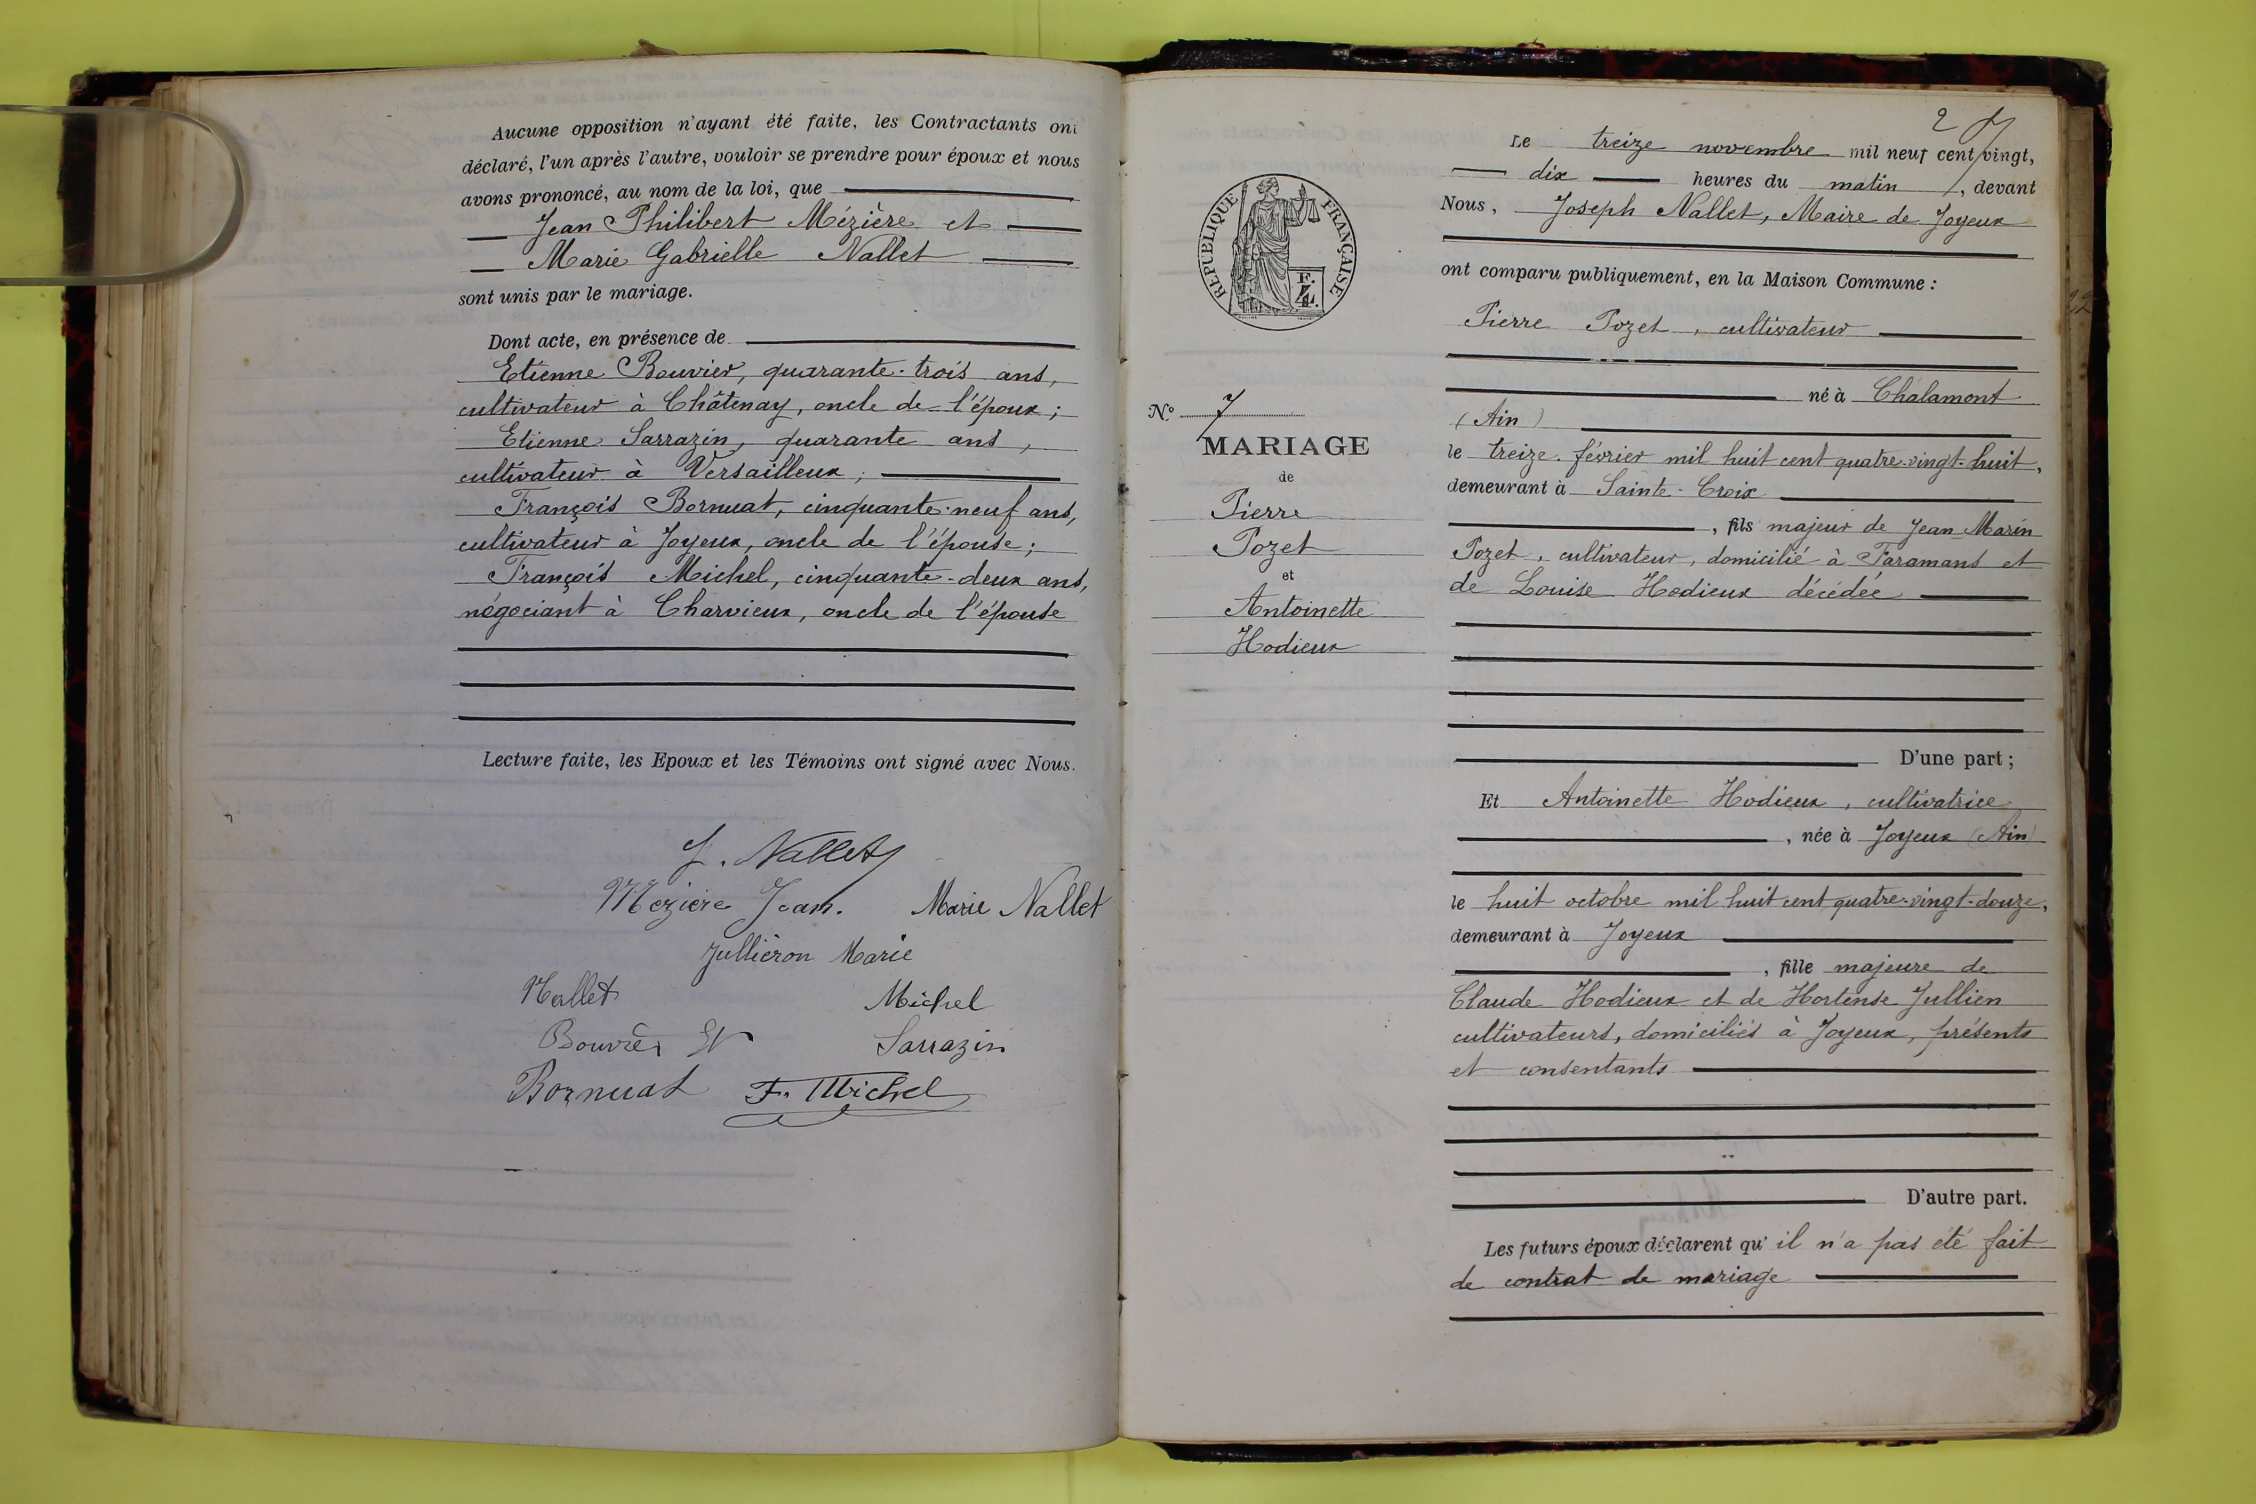 Aucune opposition n'ayant été faite, les Contractants ont
déclaré, l'un après l'autre, vouloir se prendre pour époux et nous
avons prononcé, au nom de la loi, que
Jean Philibert Mézière et
Marie Gabrielle Nallet
sont unis par le mariage.
Dont acte, en présence de
Etienne Bouvier, quarante-trois ans,
cultivateur à Châtenay, oncle de l'époux ;
Etienne Sarrazin, quarante ans,
cultivateur à Versailleux ;
François Bornuat, cinquante-neuf ans,
cultivateur à Joyeux, oncle de l'épouse ;
François Michel, cinquante-deux ans,
négociant à Charvieux, oncle de l'épouse
Lecture faite, les Epoux et les Témoins ont signé avec Nous.
J. Nallet
Mézière Jean. Marie Nallet
Julliéron Marie
Nallet Michel
Bouvier Et Sarrazin
Bornuat F. Michel
2
RÉPUBLIQUE FRANÇAISE
Nº 7
MARIAGE
de
Pierre
Pozet
et
Antoinette
Hodieux
Le treize novembre mil neuf cent vingt,
dix heures du matin, devant
Nous, Joseph Nallet, Maire de Joyeux
ont comparu publiquement, en la Maison Commune :
Pierre Pozet, cultivateur
né à Chalamont
(Ain)
le treize février mil huit cent quatre-vingt-huit,
demeurant à Sainte-Croix
, fils majeur de Jean Marin
Pozet, cultivateur, domicilié à Faramans et
de Louise Hodieux décédée
D'une part ;
Et Antoinette Hodieux, cultivatrice
, née à Joyeux (Ain)
le huit octobre mil huit cent quatre-vingt-douze,
demeurant à Joyeux
, fille majeure de
Claude Hodieux et de Hortense Jullien
cultivateurs, domiciliés à Joyeux, présents
et consentants
D'autre part.
Les futurs époux déclarent qu'il n'a pas été fait
de contrat de mariage